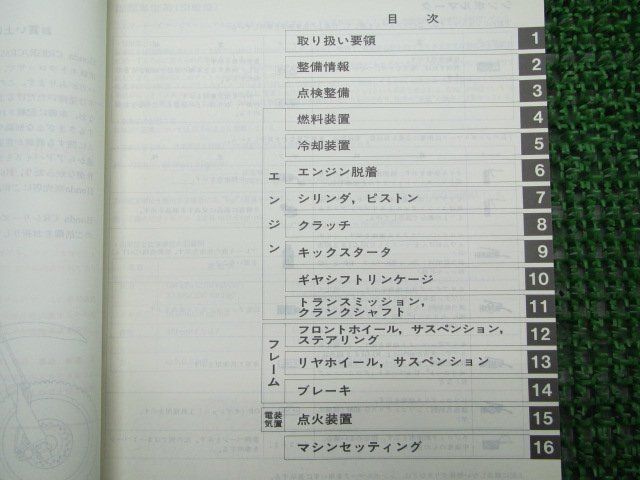 目 次
取り扱い要領 1
整備情報 2
点検整備 3
エンジン
燃料装置 4
冷却装置 5
エンジン脱着 6
シリンダ，ピストン 7
クラッチ 8
キックスタータ 9
ギヤシフトリンケージ 10
トランスミッション，
クランクシャフト 11
フレーム
フロントホイール，サスペンション，
ステアリング 12
リヤホイール，サスペンション 13
ブレーキ 14
電装
気置
点火装置 15
マシンセッティング 16